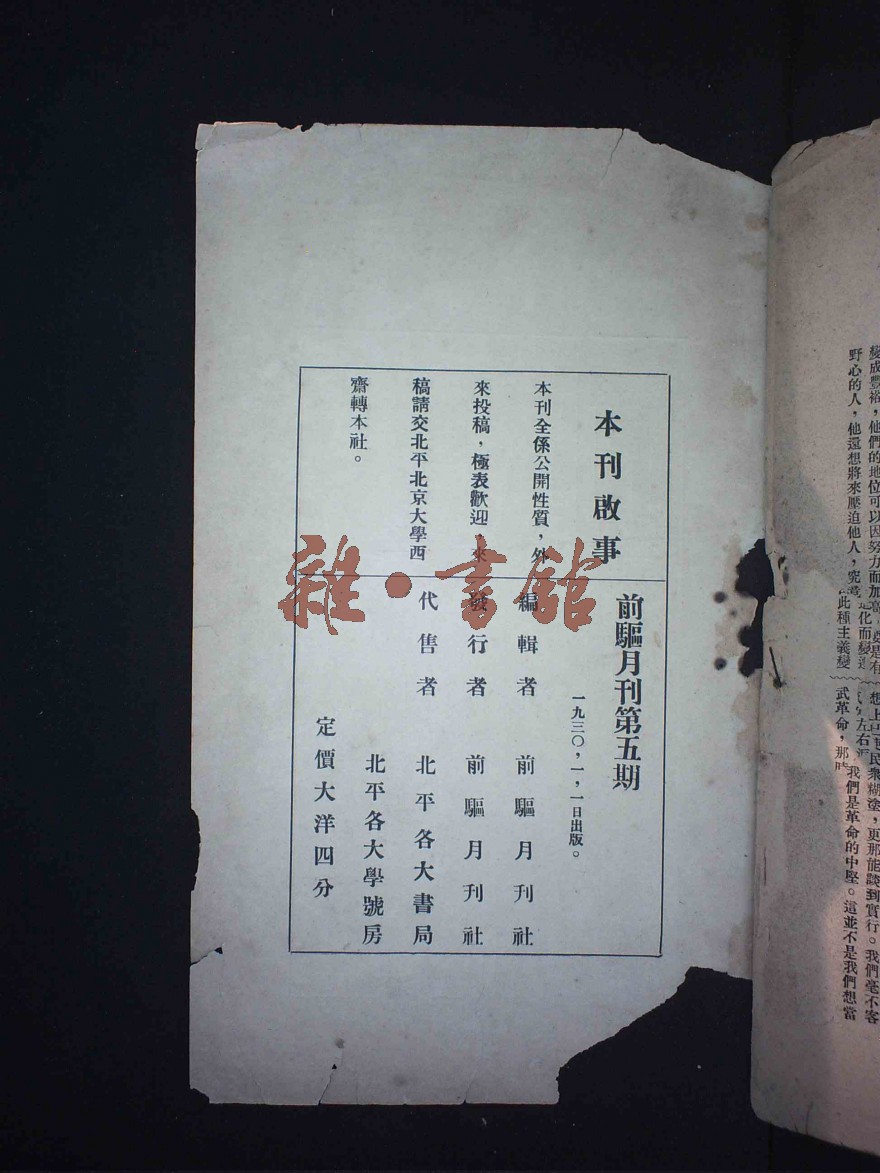 變成豐裕，他們的地位可以因努力而加高
野心的人，他還想將來壓迫他人，究竟
此種主義變
想上
民衆糊塗，更那能談到實行。我們毫不客
我們是革命的中堅。這並不是我們想當
武革命，那時
本刊啟事
本刊全係公開性質，外
來投稿，極表歡迎，來
稿請交北平北京大學西
齋轉本社。
前驅月刊第五期
一九三〇，一，一日出版。
編輯者 前驅月刊社
發行者 前驅月刊社
代售者 北平各大書局
北平各大學號房
定價大洋四分
雜·書館